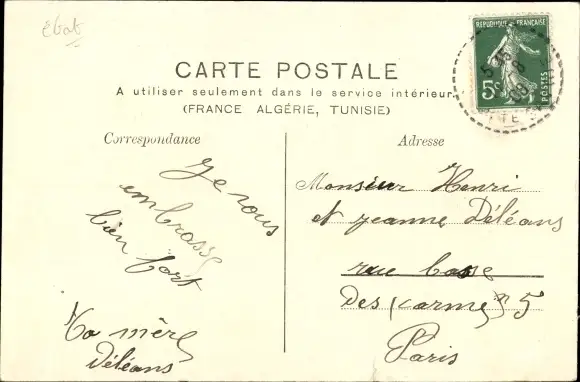 Ebat
RÉPUBLIQUE FRANÇAISE
5c
POSTES
CARTE POSTALE
A utiliser seulement dans le service intérieur
(FRANCE ALGÉRIE, TUNISIE)
Correspondance
Je vous
embrasse
bien fort
Ta mère
Déléans
Adresse
Monsieur Henri
et jeanne Déléans
rue basse
Des carmes n 5
Paris